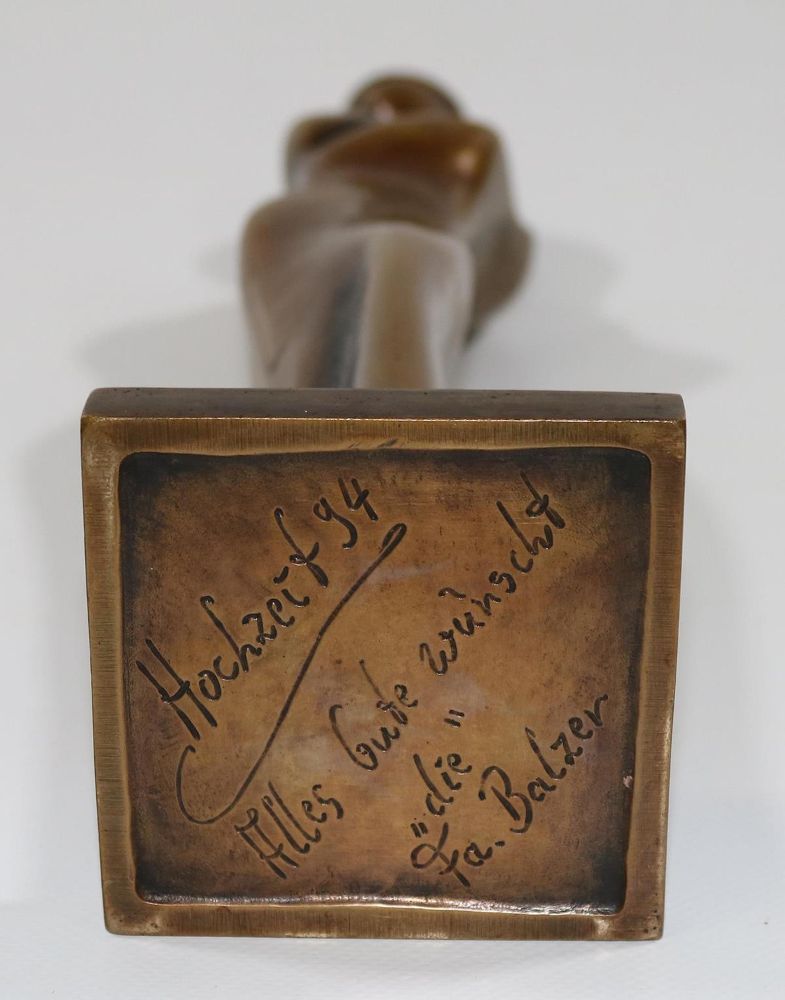 Hochzeit 94
Alles Gute wünscht
"die"
Fa. Balzer